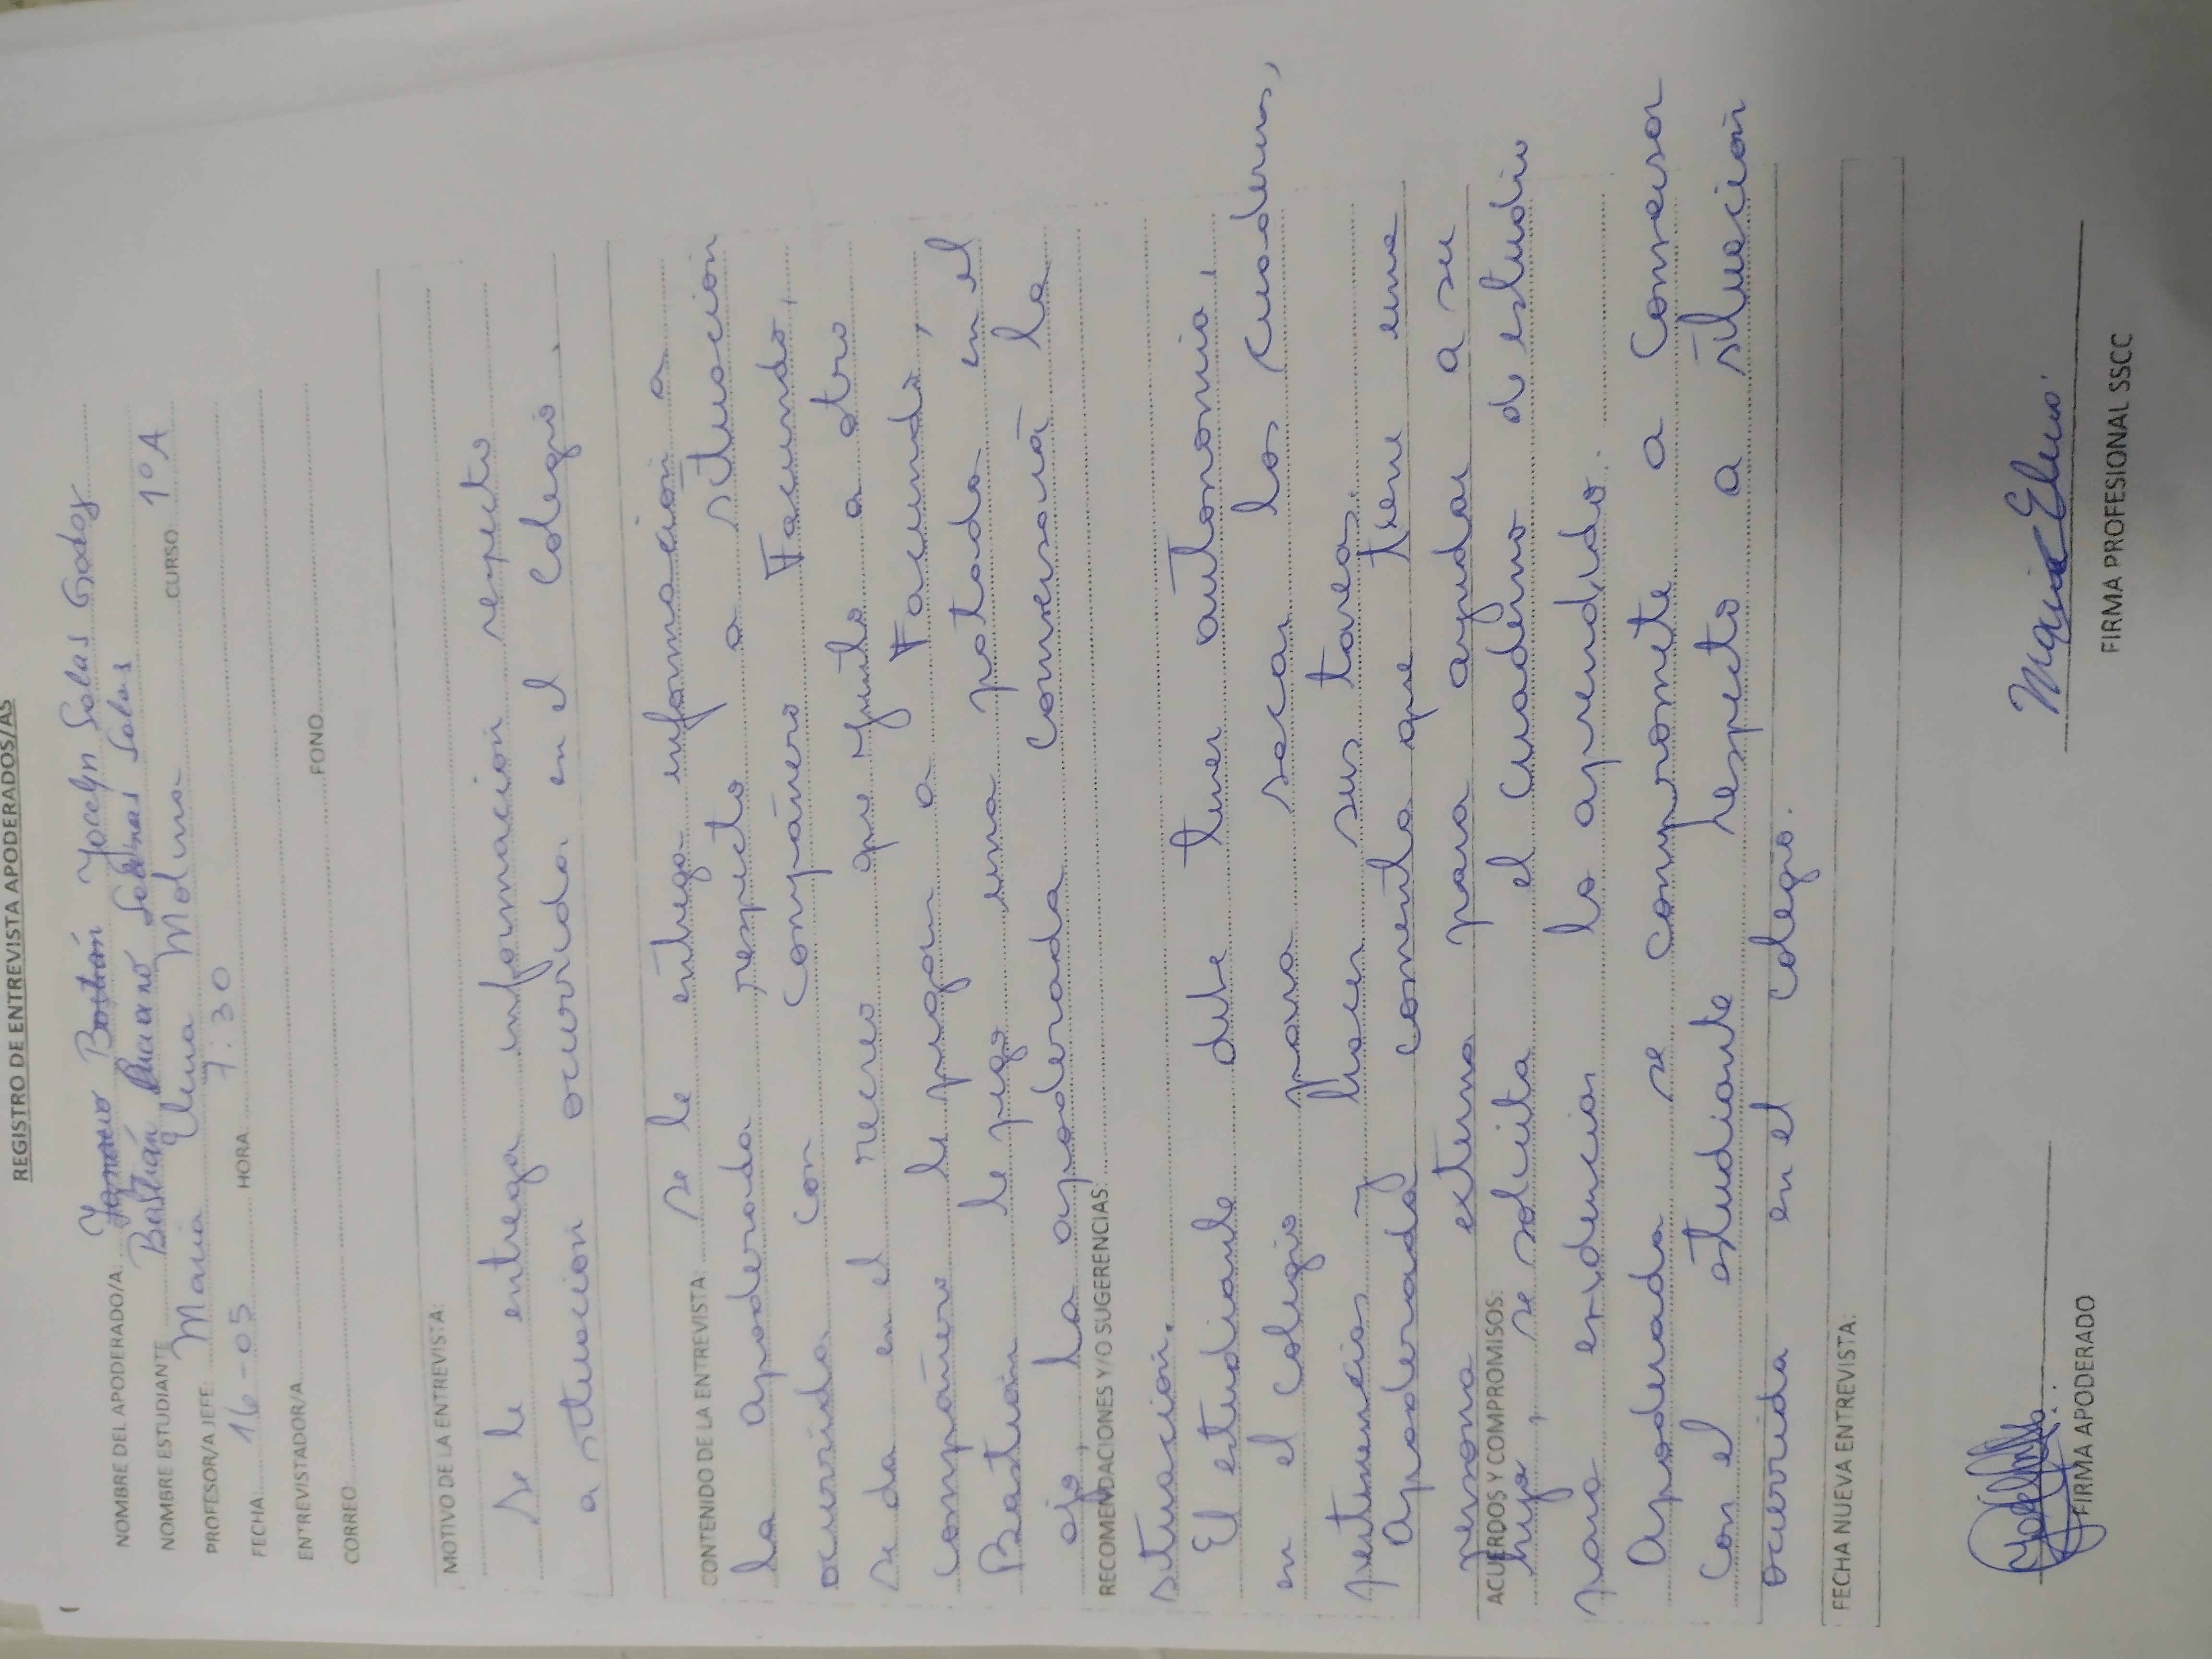 REGISTRO DE ENTREVISTA APODERADOS/AS
NOMBRE DEL APODERADO/A: Yocelyn Salas Godoy
NOMBRE ESTUDIANTE Bastián Salas
PROFESOR/A JEFE Maria Elena Molina CURSO 1º A
FECHA: 16-05 HORA: 7:30
ENTREVISTADOR/A
CORREO: FONO
MOTIVO DE LA ENTREVISTA:
se le entrega información respecto
a situación ocurrida en el colegio.
CONTENIDO DE LA ENTREVISTA: se le entrega información a
la apoderada respecto a situación
ocurrida con compañero Facundo,
se da en el recreo que junto a otro
compañero le pegan a Facundo,
Bastián le pega una patada en el
ojo, la apoderada conversará la
RECOMENDACIONES Y/O SUGERENCIAS:
situación.
El estudiante debe tener autonomía,
en el colegio para sacar los cuadernos,
pertenencias y hacer sus tareas.
Apoderada comenta que tiene una
persona externa para ayudar a su
ACUERDOS Y COMPROMISOS:
hijo, se solicita el cuaderno de estudio
para evidenciar lo aprendido.
Apoderada se compromete a conversar
con el estudiante respecto a situación
ocurrida en el colegio.
FECHA NUEVA ENTREVISTA:
Maria Elena
FIRMA APODERADO FIRMA PROFESIONAL SSCC